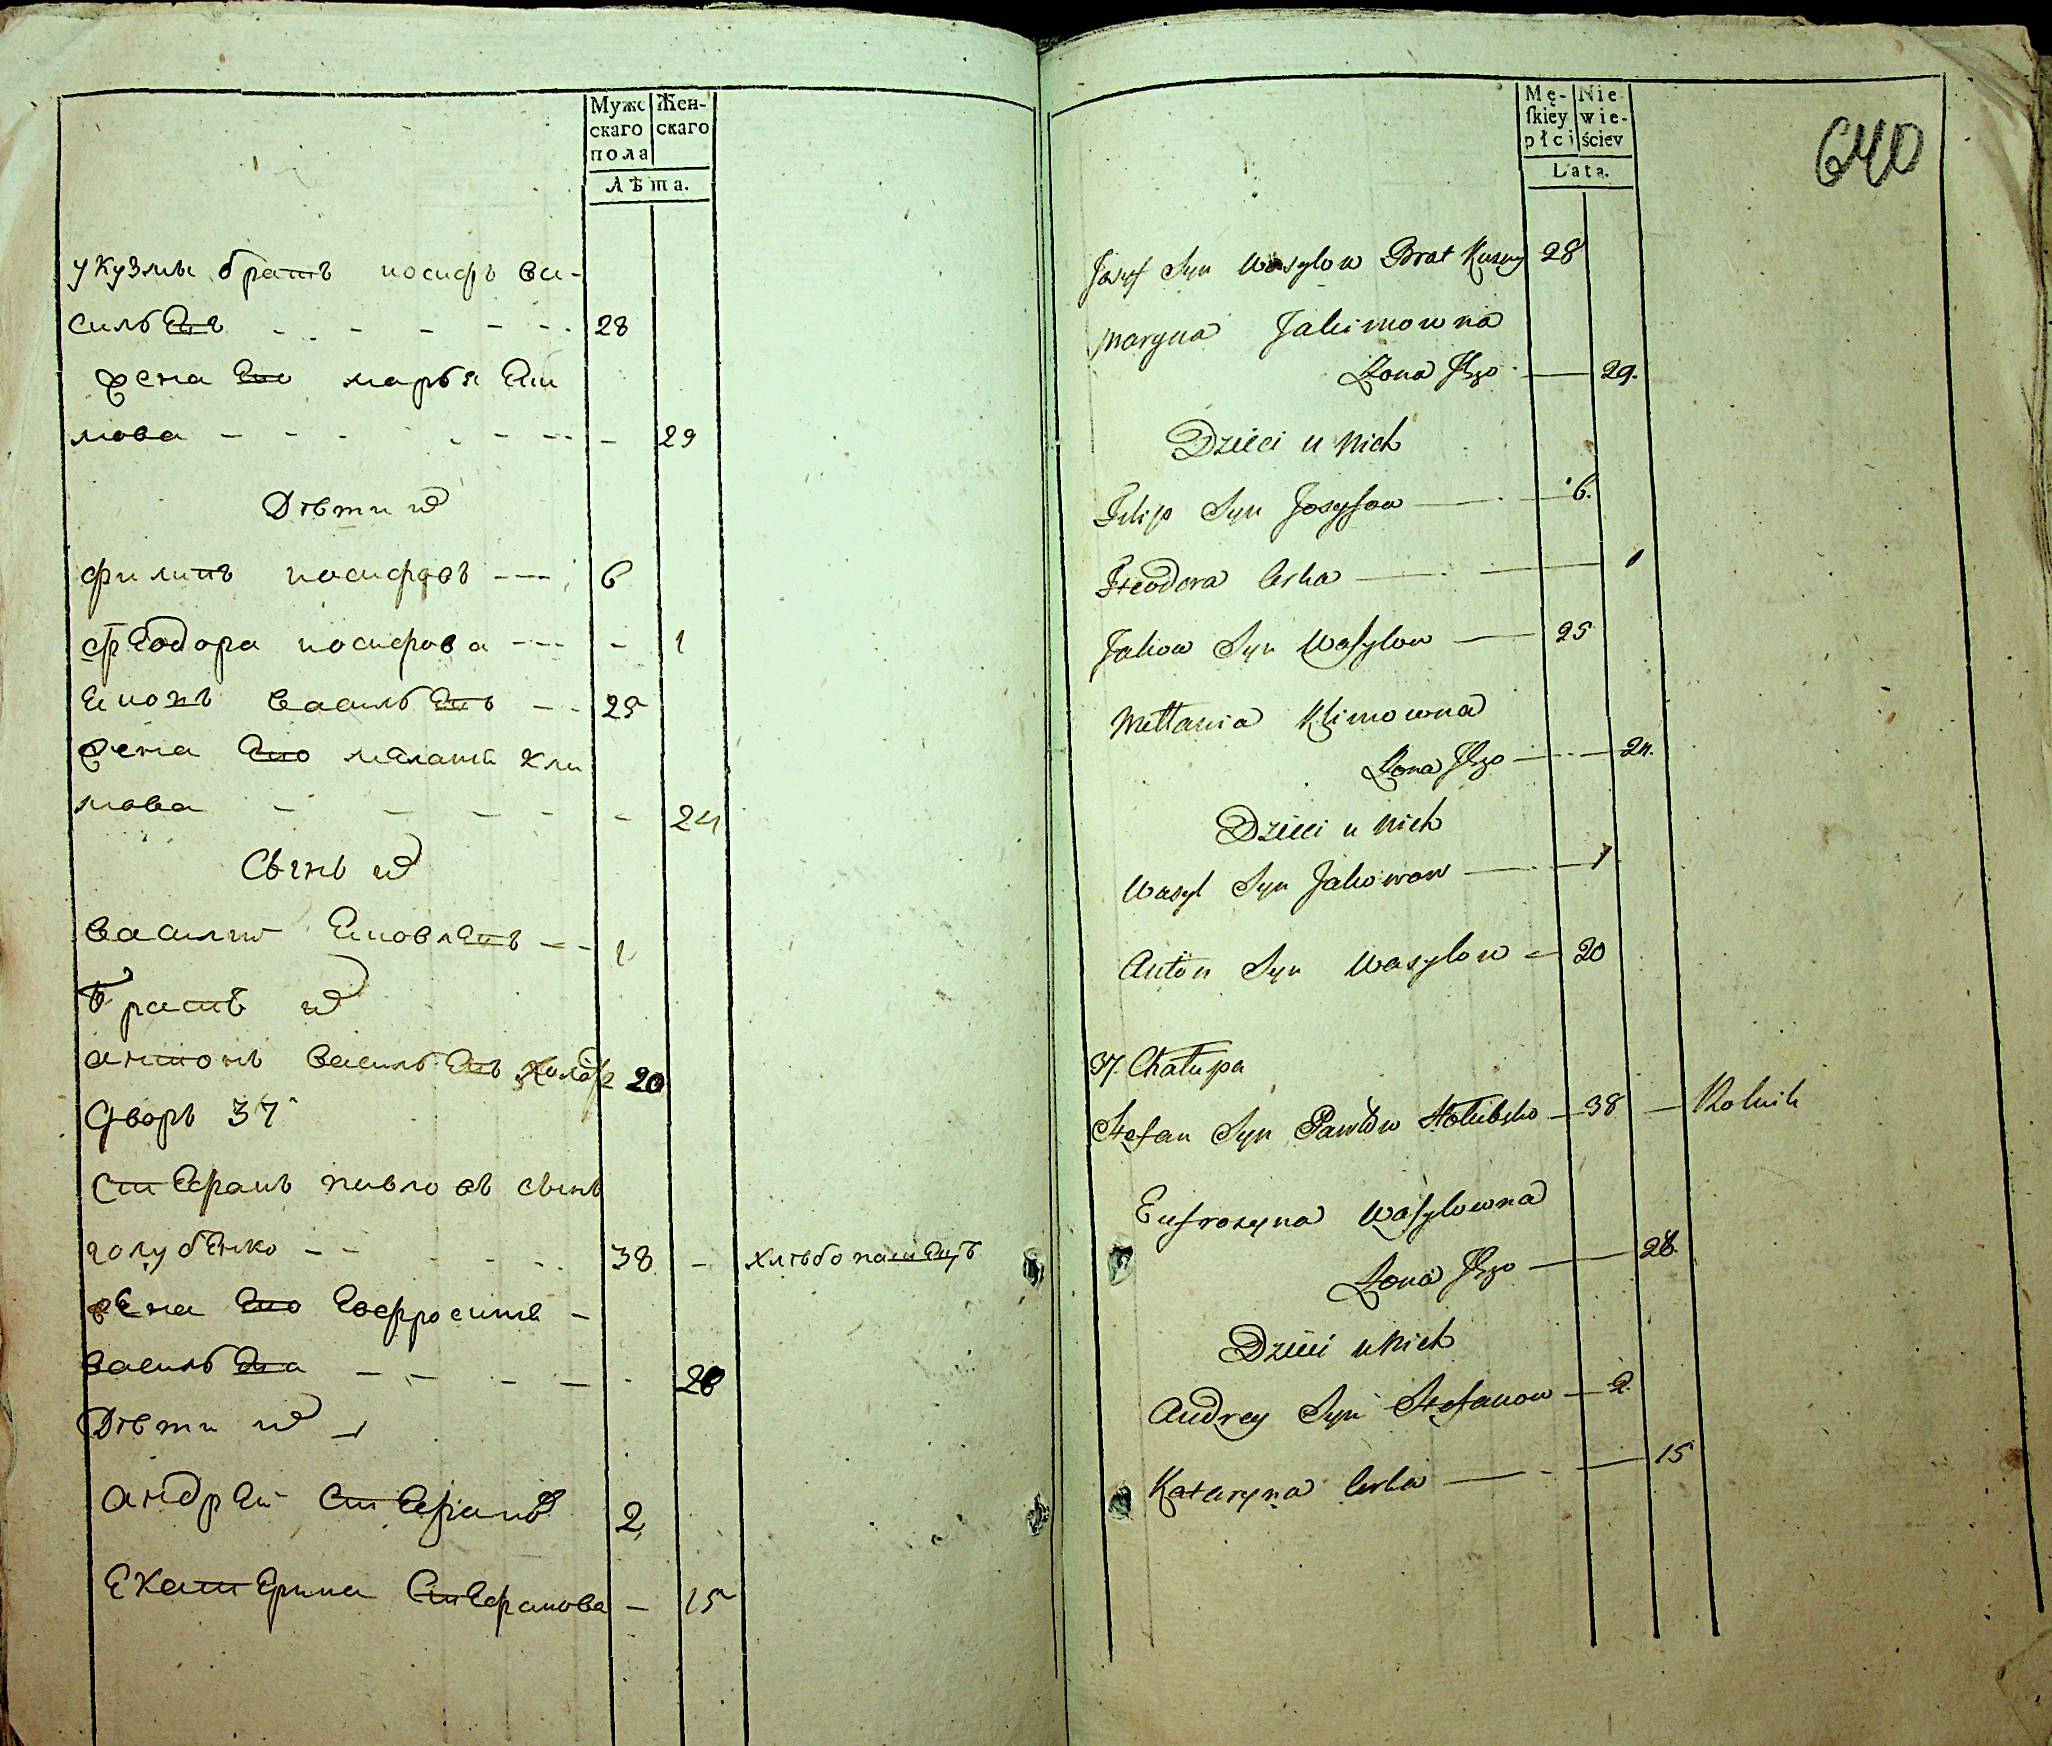 Мужс
скаго
пола
Жен-
скаго
Лѣта.
у кузмы братъ иосифъ ва-
сильевъ - - - - - - 28
жена Его марья Еки
мова - - - - - - - 29
Дѣти их
филипъ иосифовъ --- 6
феодора иосифова --- - 1
Ековъ васильевъ - - 25
жена Его мелания кли
мова - - - - - 24
Сынъ их
василий Ековлевъ - - 1
Братъ их
антонъ васильевъ холос 20
Дворъ 37
Стефанъ павловъ сынъ
голубенко - - - - - 38 - хлѣбопашецъ
жена Его Евфросиния -
васильева - - - - - 28
Дѣти их
андрей Стефановъ 2
Екатерина Стефанова - 15
Mę-
skiey
płci
Nie
wie-
ściey
Lata.
640
Jozyf Syn Wasylow Brat Kuzmy 28
Maryna Jakimowna
Żona Jego — 29.
Dzieci u Nich
Filip Syn Josyfow — 6.
Fteodora Corka — 1
Jakow Syn Wasylow — 25
Mełania Klimowna
Żona Jego — 24.
Dzieci u Nich
Wasyl Syn Jakowow — 1
Anton Syn Wasylow — 20
37. Chałupa
Stefan Syn Pawłów Hołubko — 38 — Rolnik
Eufrozyna Wasylowna
Żona Jego — 28.
Dzieci u Nich
Andrey Syn Stefanow — 2.
Kataryna Corka — 15